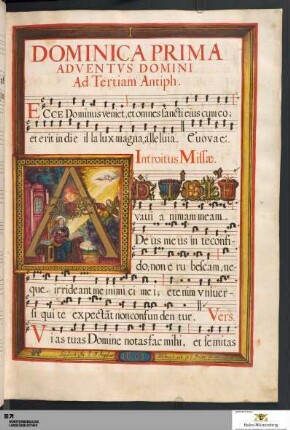 1
DOMINICA PRIMA
ADVENTVS DOMINI
Ad Tertiam Antiph.
ECCE Dominus veniet, et omnes sancti eius cum eo:
et erit in die illa lux magna, alleluia. Euovae.
Introitus Missæ.
AD TE LE
vavi animam meam.
Deus meus in te confi-
do, non erubescam, ne-
que irrideant me inimici mei: etenim vniver-
si qui te expectāt non confundentur. Vers.
Vias tuas Domine notas fac mihi, et semitas
WÜRTTEMBERGISCHE
LANDESBIBLIOTHEK
Baden-Württemberg